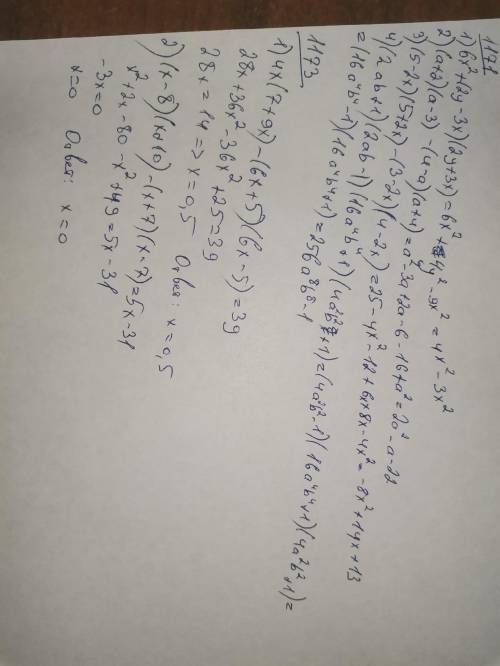 1171
1) 6x² + (2y - 3x)(2y + 3x) = 6x² + 4y² - 9x² = 4x² - 3x²
2) (a+2)(a-3) - (4-a)(a+4) = a² - 3a + 2a - 6 - 16 + a² = 2a² - a - 22
3) (5-2x)(5+2x) - (3-2x)(4-2x) = 25 - 4x² - 12 + 6x + 8x - 4x² = -8x² + 14x + 13
4) (2ab+1)(2ab-1)(16a⁴b⁴+1)(4a²b²+1) = (4a²b²-1)(16a⁴b⁴+1)(4a²b²+1) =
= (16a⁴b⁴-1)(16a⁴b⁴+1) = 256a⁸b⁸-1
1173
1) 4x(7+9x) - (6x+5)(6x-5) = 39
28x + 36x² - 36x² + 25 = 39
28x = 14 => x = 0,5 Ответ: x = 0,5
2) (x-8)(x+10) - (x+7)(x-7) = 5x - 31
x² + 2x - 80 - x² + 49 = 5x - 31
-3x = 0
x = 0 Ответ: x = 0